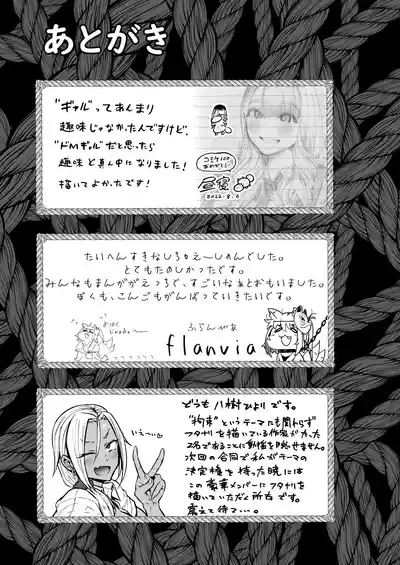 あとがき
"ギャル"ってあんまり
趣味じゃなかったんですけど、
"ドMギャル"だと思ったら
趣味ど真ん中になりました!
描いてよかったです!
コミケ100
おめでとう!
2022.8.6
たいへんすきなしちゅえーしょんでした。
とてもたのしかったです。
みんなもまんががえっちで、すごいなぁとおもいました。
ぼくも、こんごもがんばっていきたいです。
ふらんゔぃあ
flanvia
いえーい
どうも 八樹ひよりです。
"拘束"というテーマにも関わらず
フタナリを描いている作家が
2名であることに動揺を隠せません。
次回の合同で私がテーマの
決定権を持った暁には
この豪華メンバーにフタナリを
描いていただく所存です。
震えて待て…。